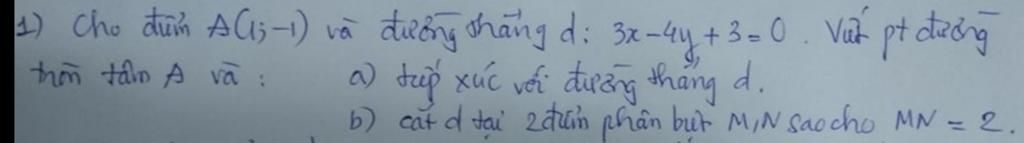 1) Cho điểm A(1;-1) và đường thẳng d: 3x-4y+3=0. Viết pt đường
tròn tâm A và: a) tiếp xúc với đường thẳng d.
b) cắt d tại 2 điểm phân biệt M,N sao cho MN = 2.